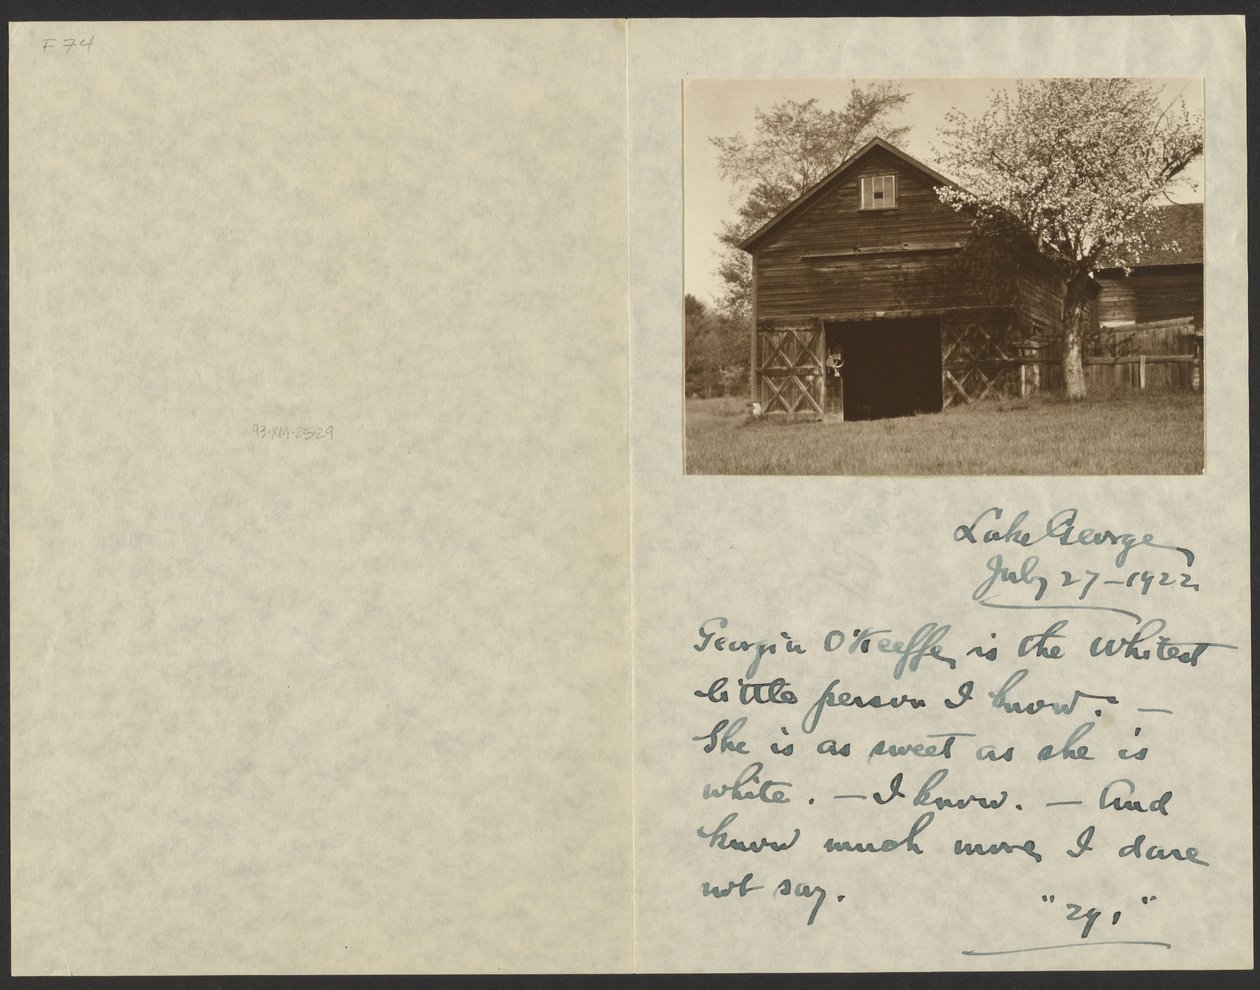 F 74
93.XM.25.29
Lake George
July 27 – 1922.
Georgia O'Keeffe, is the Whitest
little person I know. —
She is as sweet as she is
white. — I know. — And
know much more I dare
not say.
"291"